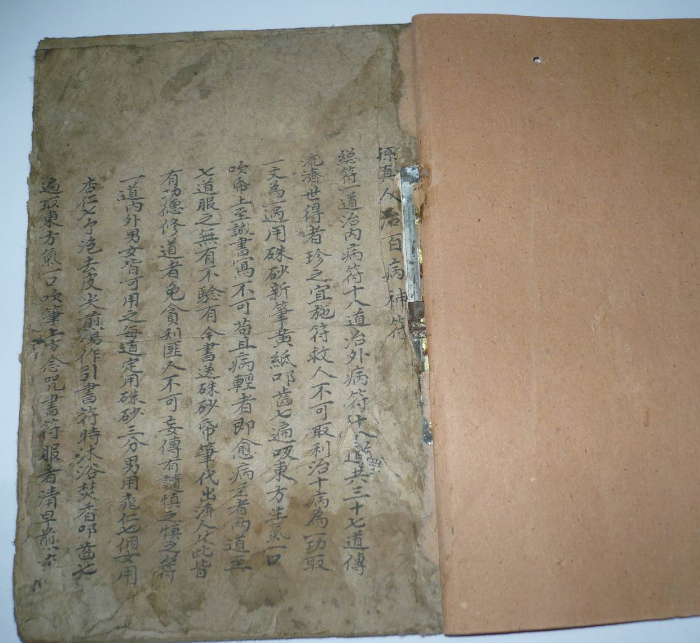 孫真人治百病神符
縂符一道治內病符十八道治外病符十八道共三十七道傳
流濟世得者珍之宜施符救人不可取利治十病為一功取
一文為一過用硃砂新筆黃紙叩齒七遍吸東方生氣一口
吹帋上至誠書寫不可苟且病輕者即愈病至者兩道至
七道服之無有不驗有令書送硃砂帋筆代出流人此皆
有功德修道者免貪利匪人不可妄傳有諸慎之慎之符
一道內外男女皆可用之每道定用硃砂三分男用桃仁七個女用
杏仁七个泡去皮尖煎湯作引書符時沐浴焚香叩齒七
遍取東方氣一口吹筆上方念咒書符服者清早煎